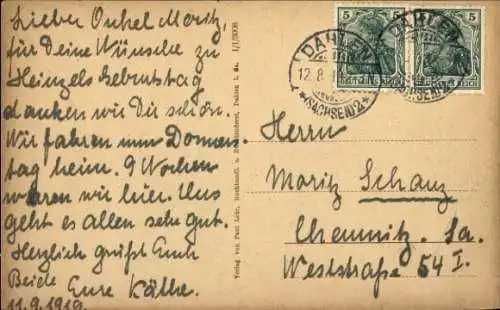 Lieber Onkel Moritz,
für Deine Wünsche zu
Heinzels Geburtstag
danken wir Dir schön.
Wir fahren nun Donners
tag heim. 9 Wochen
waren wir hier. Uns
geht es allen sehr gut.
Herzlich grüßt Euch
Beide Eure Käthe.
11.9.1919.
1/1/3008
Verlag von Paul Lehr, Buchhandl. u. Buchbinderei, Dahlen i. Sa.
5 5
DAHLEN
12.8.
*(SACHSEN)2*
DAHLEN
(SACHSEN)2
Herrn
Moritz Schanz
Chemnitz. Sa.
Weststraße 54 I.